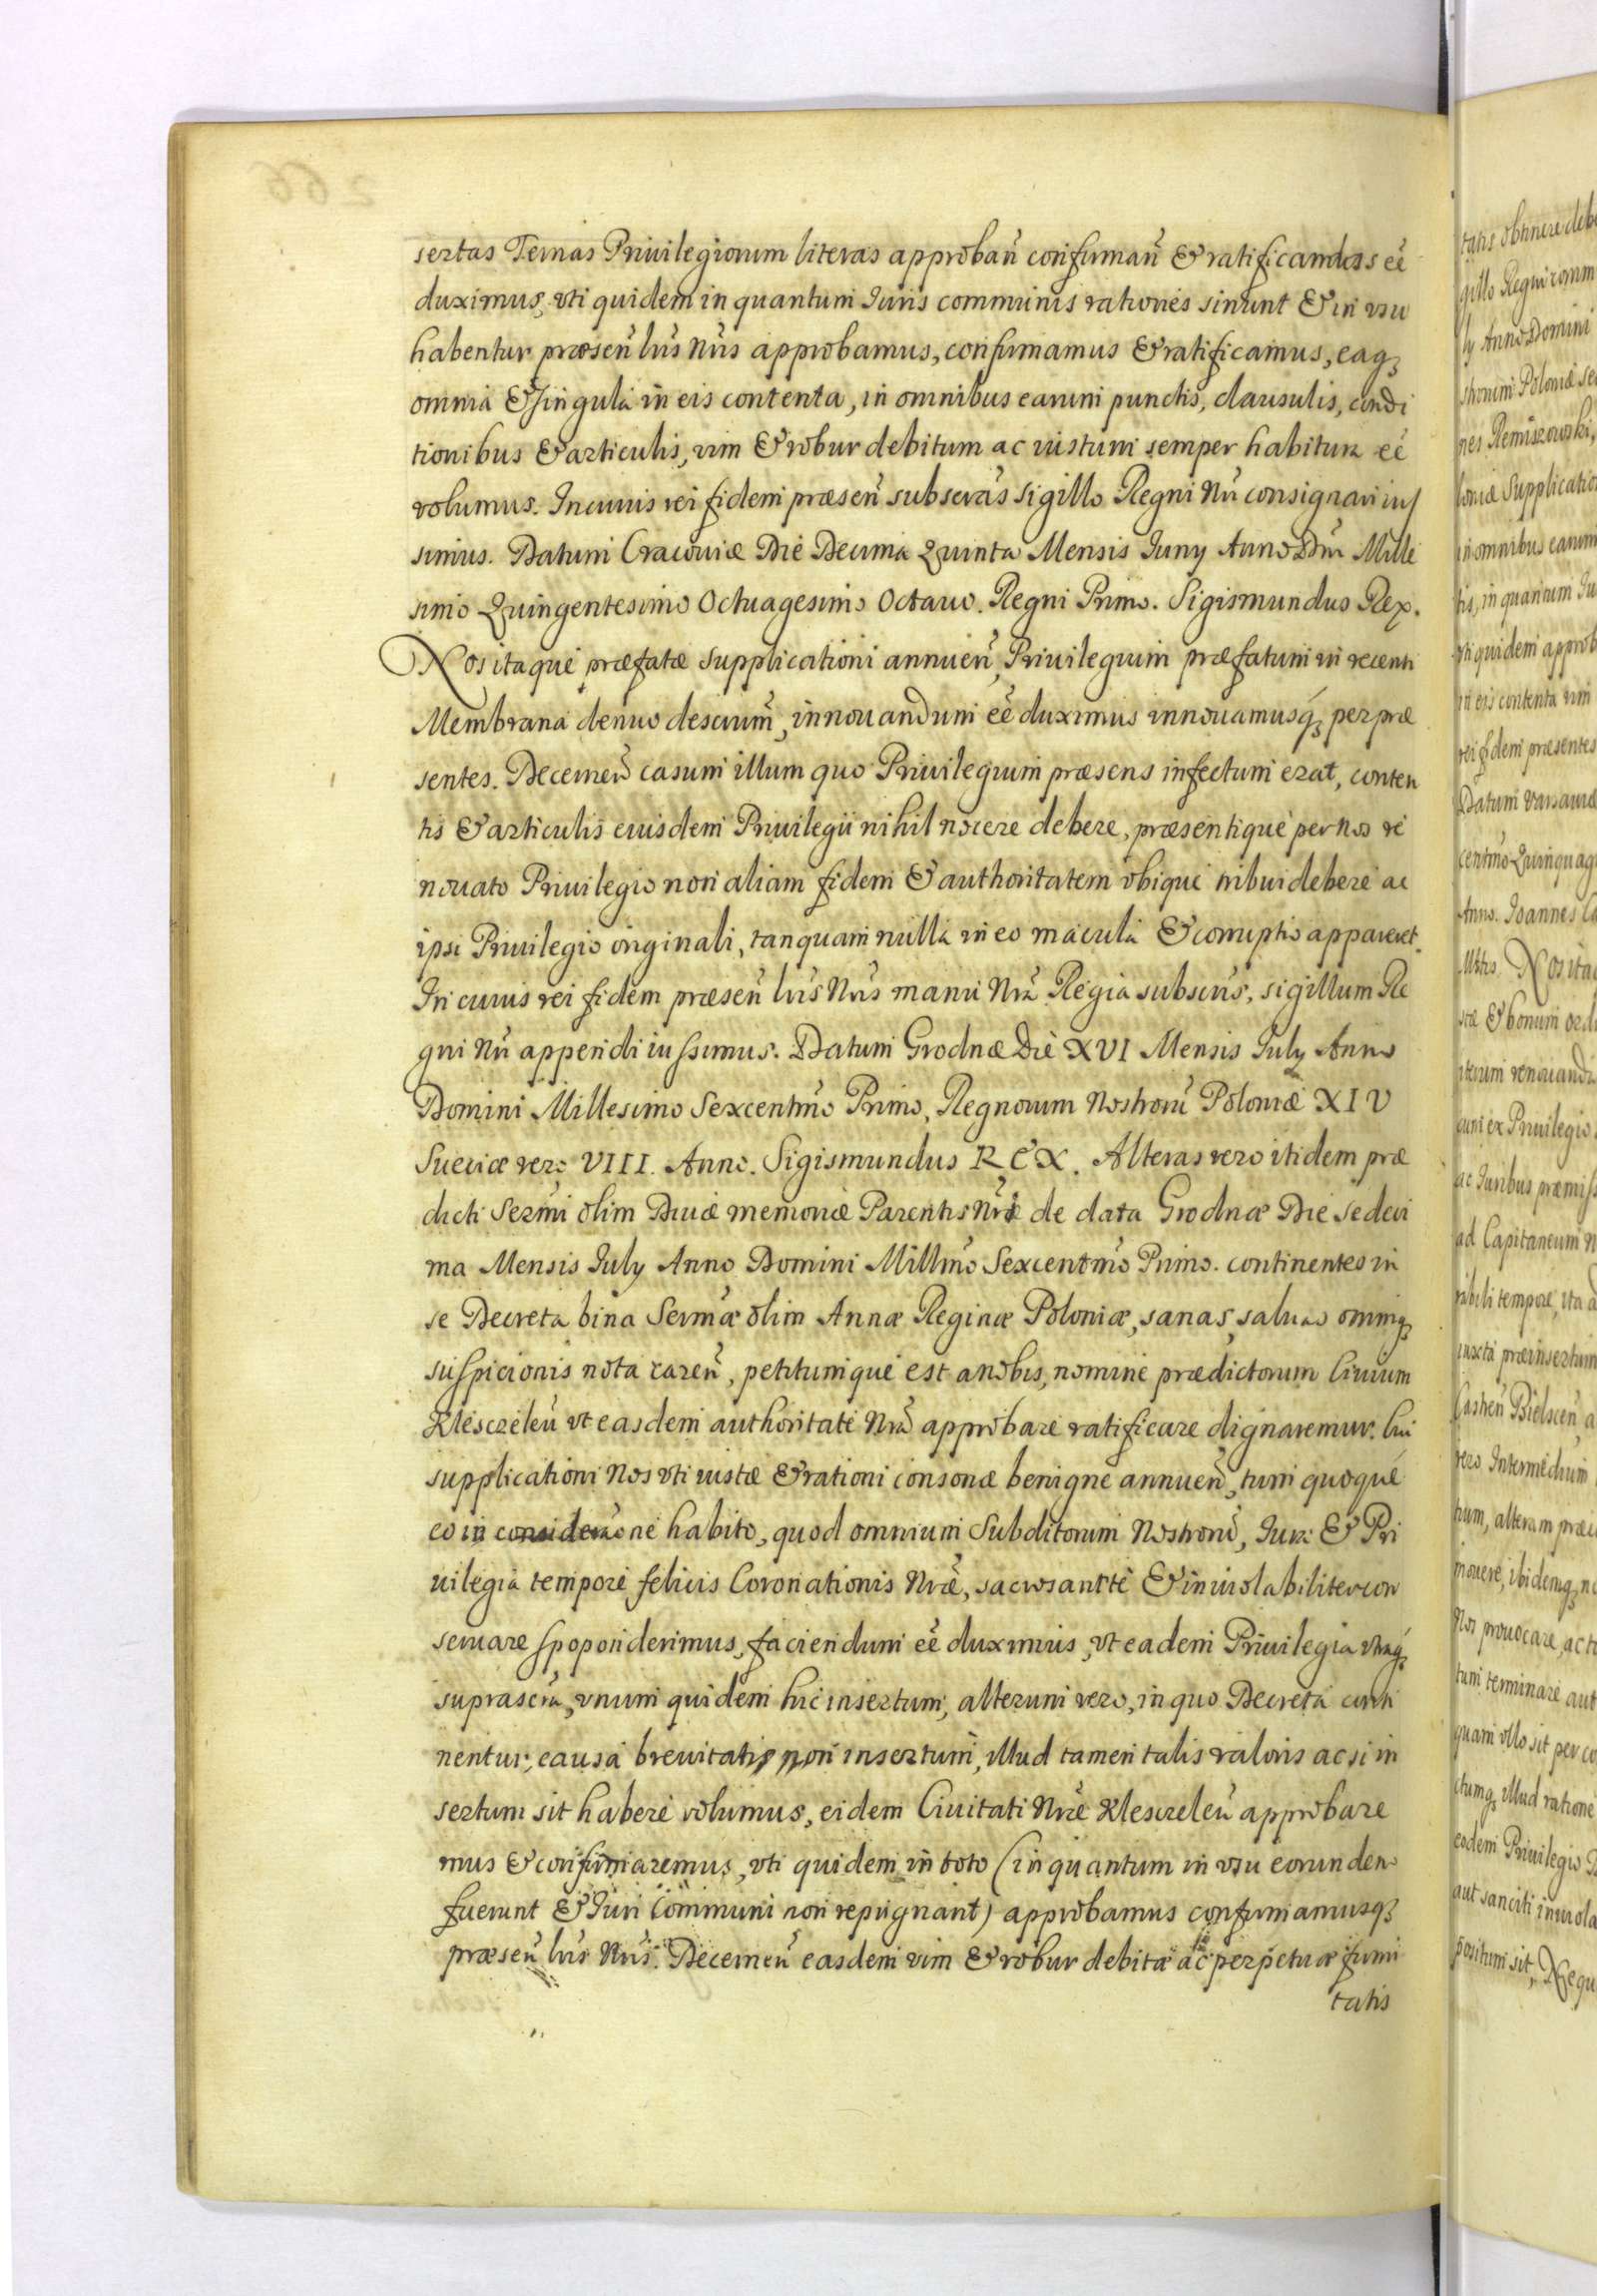 sertas Ternas Priuilegiorum literas approban̄ confirman̄ & ratificandas eē
duximus, vti quidem in quantum Iuris communis rationes sinunt & in vsu
habentur præsen̄ lr̄is Nr̄is approbamus, confirmamus & ratificamus, eaq₃
omnia & singula in eis contenta, in omnibus earum punctis, clausulis, condi
tionibus & articulis, vim & robur debitum ac iustum semper habitura eē
volumus. In cuius rei fidem præsen̄ subscr̄as sigillo Regni Nr̄i consignari ius
simus. Datum Cracouiæ Die Decima Quinta Mensis Iuny Anno Dn̄i Mille
simo Quingentesimo Octuagesimo Octauo. Regni Primo. Sigismundus Rex.
Nos itaque præfatæ supplicationi annuen̄, Priuilegium præfatum in recenti
Membrana denuo descrium̄, innouandum eē duximus innouamusq₃ per præ
sentes. Decernen̄ casum illum quo Priuilegium præsens infectum erat, conten
tis & articulis eiusdem Priuilegii nihil nocere debere, præsentique per Nos re
nouato Priuilegio non aliam fidem & authoritatem vbique tribui debere ac
ipsi Priuilegio originali, tanquam nulla in eo macula & corruptio appareret.
In cuius rei fidem præsen̄ lr̄is Nr̄is manu Nr̄a Regia subscr̄is, sigillum Re
gni Nr̄i appendi iussimus. Datum Grodnæ Die XVI Mensis Iuly Anno
Domini Millesimo Sexcentmo Primo, Regnorum Nostrorū Poloniæ XIV
Sueciæ vero VIII. Anno. Sigismundus REX. Alteras vero itidem præ
dicti Sermi olim Diuæ memoriæ Parentis Nr̄i de data Grodnæ Die sedeci
ma Mensis Iuly Anno Domini Millmo Sexcentmo Primo. continentes in
se Decreta bina Sermæ olim Annæ Reginæ Poloniæ, sanas, saluas omniq₃
suspicionis nota caren̄, petitumque est a nobis, nomine prædictorum Ciuium
Klesczelen̄ vt easdem authoritate Nr̄a approbare ratificare dignaremur. Cui
supplicationi Nos vti iustæ & rationi consonæ benigne annuen̄, tum quoque
eo in consideraōne habito, quod omnium Subditorum Nostrorū, Iura & Pri
uilegia tempore felicis Coronationis Nr̄æ, sacrosantte & inuiolabiliter con
seruare spoponderimus, faciendum eē duximus, vt eadem Priuilegia vtraq₃
suprascr̄a, vnum quidem hic insertum, alterum vero, in quo Decreta conti
nentur, causa breuitatis non insertum, illud tamen talis valoris ac si in
sertum sit habere volumus, eidem Ciuitati Nr̄æ Klesczelen̄ approbare
mus & confirmaremus, vti quidem in toto (in quantum in vsu eorundem
fuerunt & Iuri Communi non repugnant) approbamus confirmamusq₃
præsen̄ lr̄is Nr̄is. Decernen̄ easdem vim & robur debitæ ac perpetuæ firmi
tatis